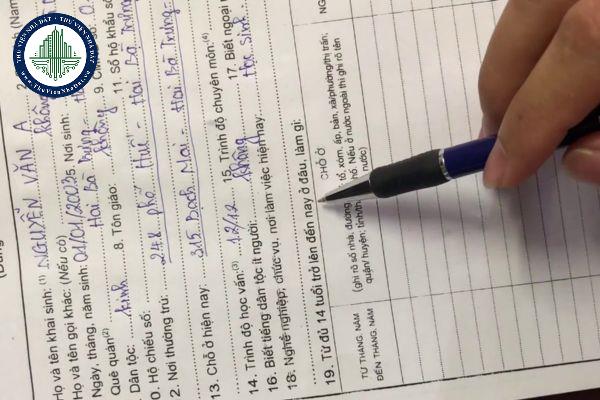 THƯ VIỆN NHÀ ĐẤT
www.ThuVienNhaDat.vn
Họ và tên khai sinh: (1) NGUYỄN VĂN A 2.
Họ và tên gọi khác: (Nếu có) không
Ngày, tháng, năm sinh: 01/01/2002 5. Nơi sinh: Hai Bà Trưng
Quê quán(2) Hai Bà Trưng 9.
Dân tộc: kinh 8. Tôn giáo: không 11. Số hộ khẩu số
0. Hộ chiếu số:
2. Nơi thường trú: 248 phố Huế - Hai Bà Trưng -
13. Chỗ ở hiện nay: 315 Bạch Mai - Hai Bà Trưng -
14. Trình độ học vấn:(3) 12/12 15. Trình độ chuyên môn:(4)
16. Biết tiếng dân tộc ít người: không 17. Biết ngoại
18. Nghề nghiệp, chức vụ, nơi làm việc hiện nay: Học Sinh
19. Từ đủ 14 tuổi trở lên đến nay ở đâu, làm gì:
TỪ THÁNG, NĂM
ĐẾN THÁNG, NĂM
CHỖ Ở
(ghi rõ số nhà, đường, xóm, ấp, bản, xã/phường/thị trấn,
quận/ huyện; tỉnh/ Nếu ở nước ngoài thì ghi rõ tên
nước)